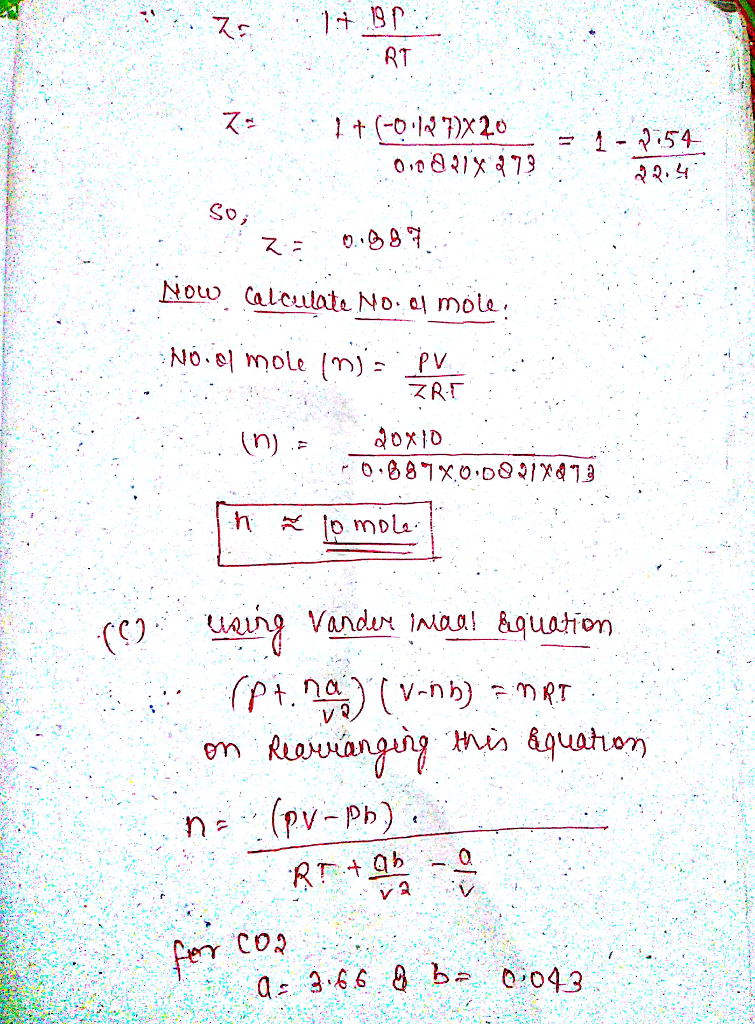 Z = 1 + BP / RT
Z = 1 + (-0.127)×20 / 0.0821×273 = 1 - 2.54 / 22.4
So,
Z = 0.887
Now Calculate No. of mole:
No. of mole (n) = PV / ZRT
(n) = 20×10 / 0.887×0.0821×273
n ≈ 10 mole
(C) using Vander Waal Equation
(P + na / v2) (V-nb) = nRT
on Rearranging this Equation
n = (PV - Pb) / RT + ab / v2 - a / v
for CO2
a = 3.66 & b = 0.043